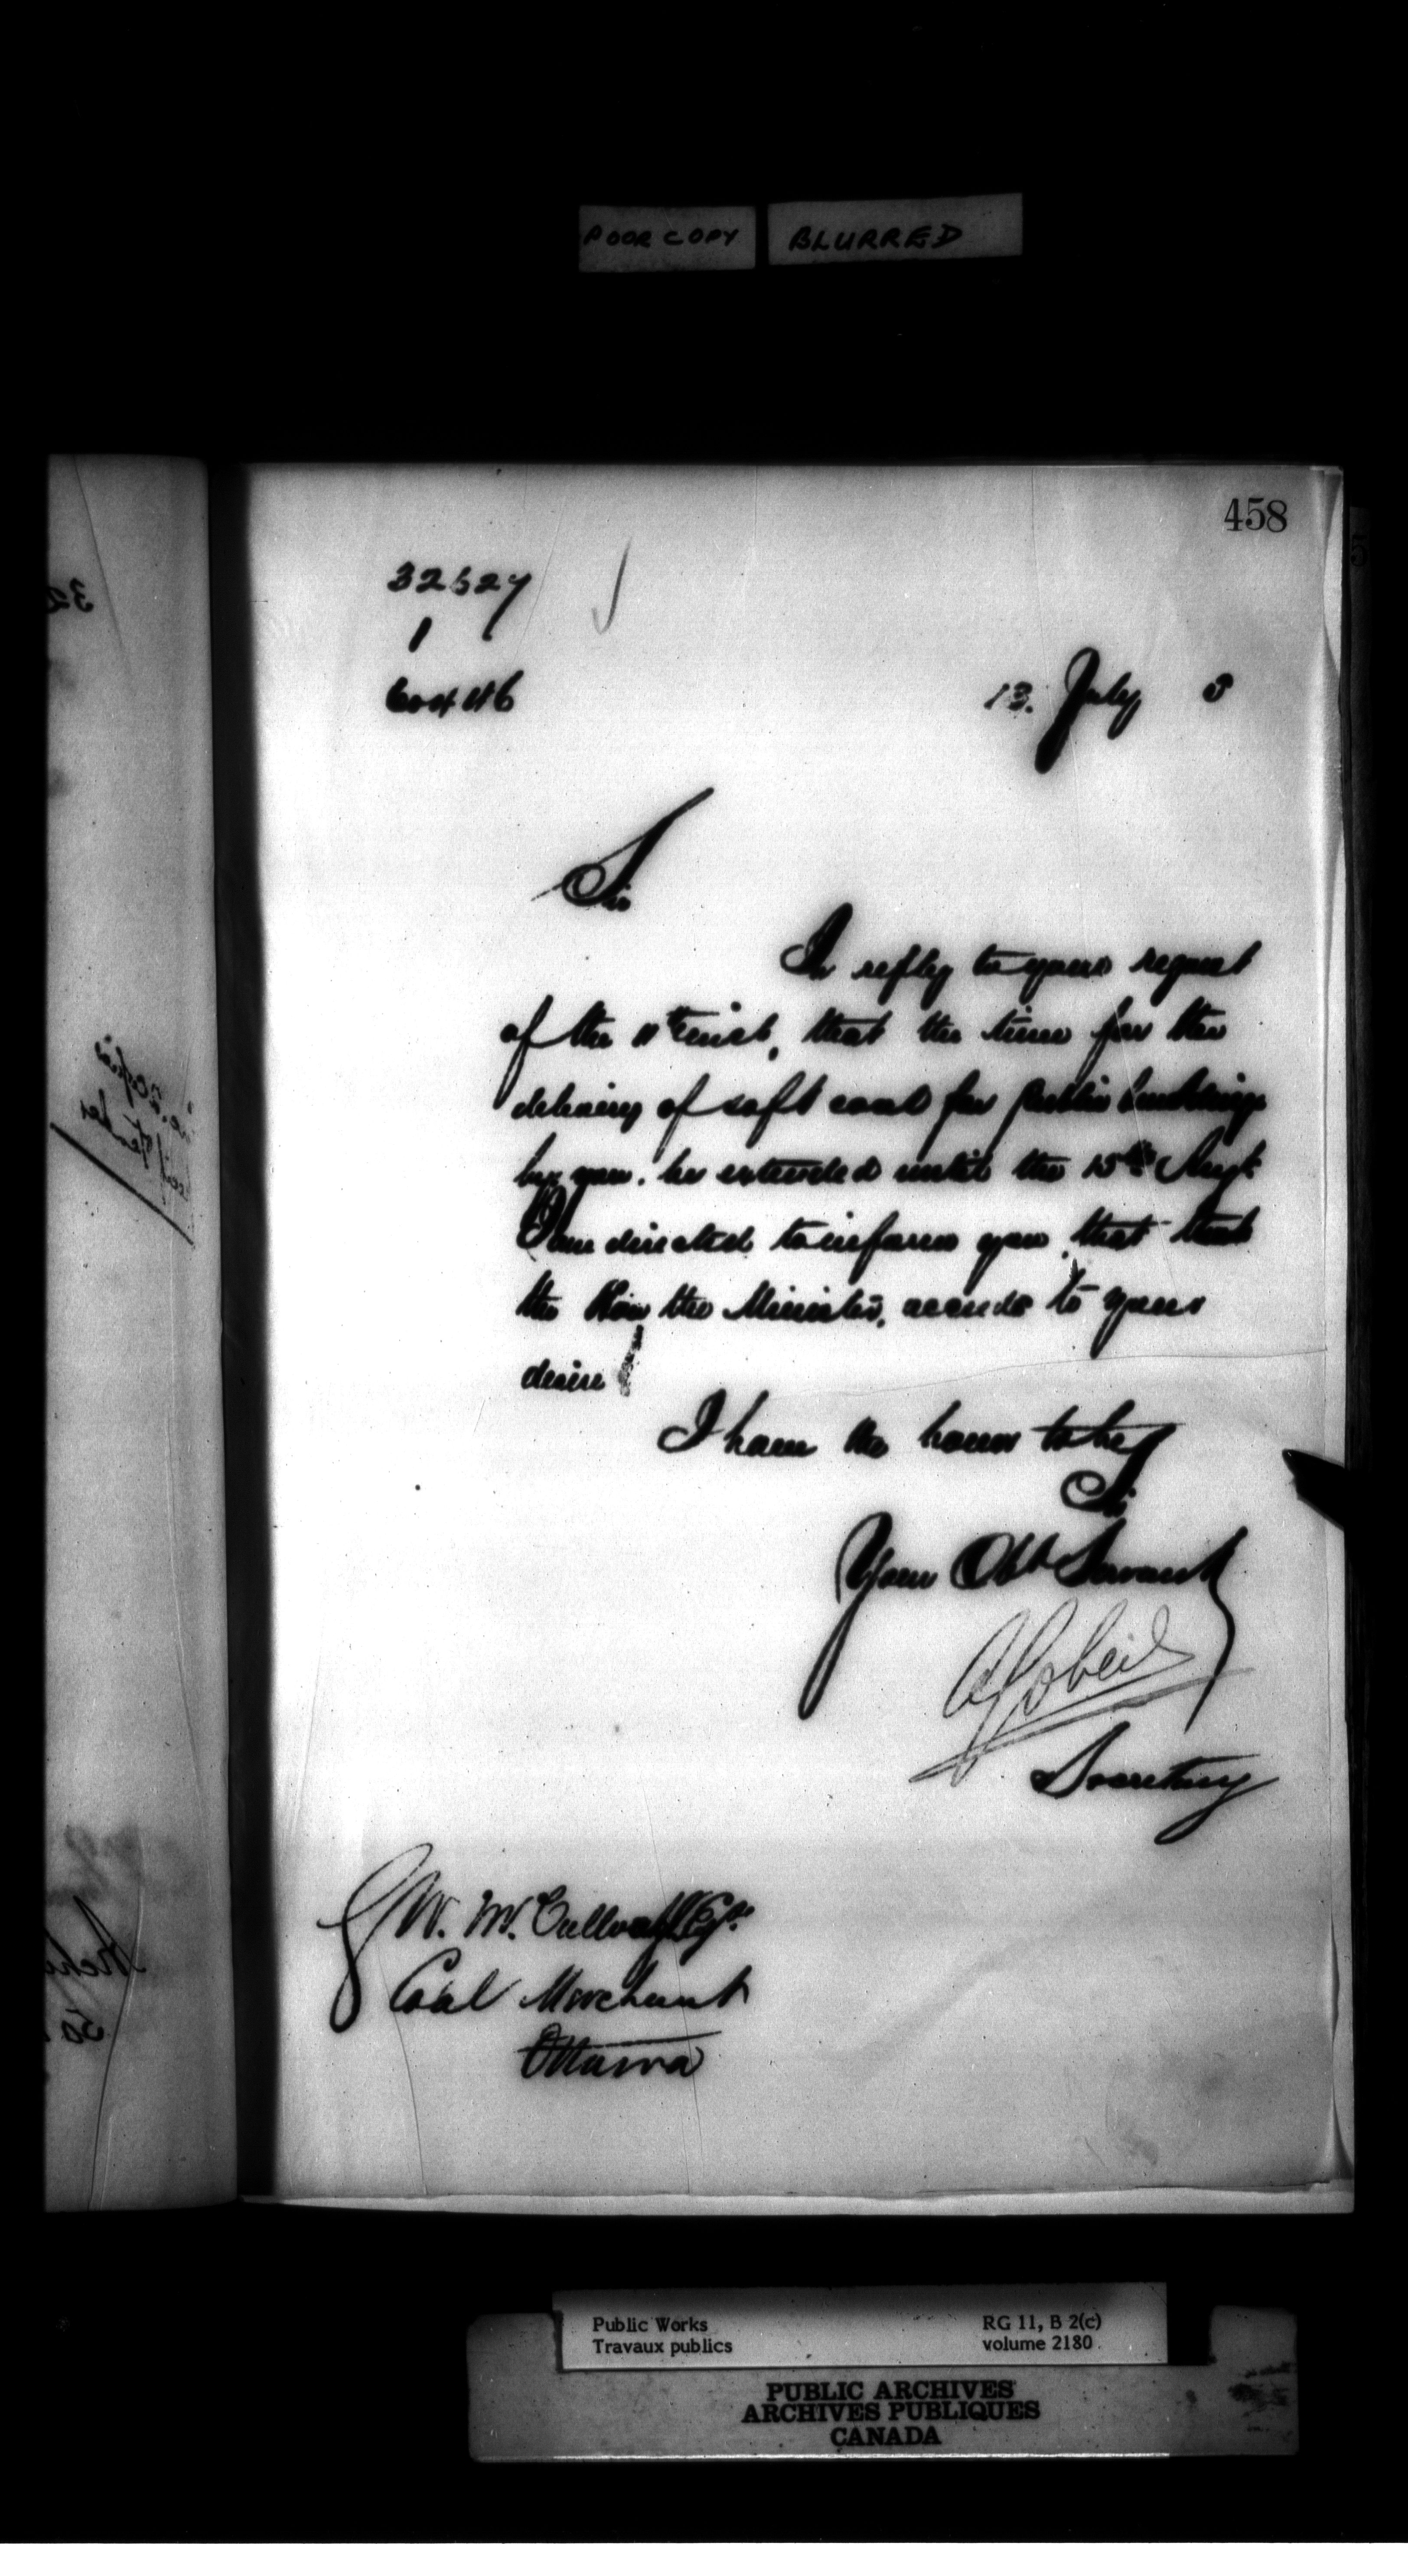 POOR COPY BLURRED
458
32527
1
60446
13. July 5
Sir
In reply to your request
of the 11th inst, that the time for the
delivery of soft coal for public buildings
by you. be extended until the 15th Augt
I am directed to inform you, that that
the Hon the Minister, accedes to your
desire
I have the honor to be
Sir
Your Obt Servant
A Gobeil
Secretary
W. McCullough Esqr.
Coal Merchant
Ottawa
Public Works RG 11, B 2(c)
Travaux publics volume 2180
PUBLIC ARCHIVES
ARCHIVES PUBLIQUES
CANADA